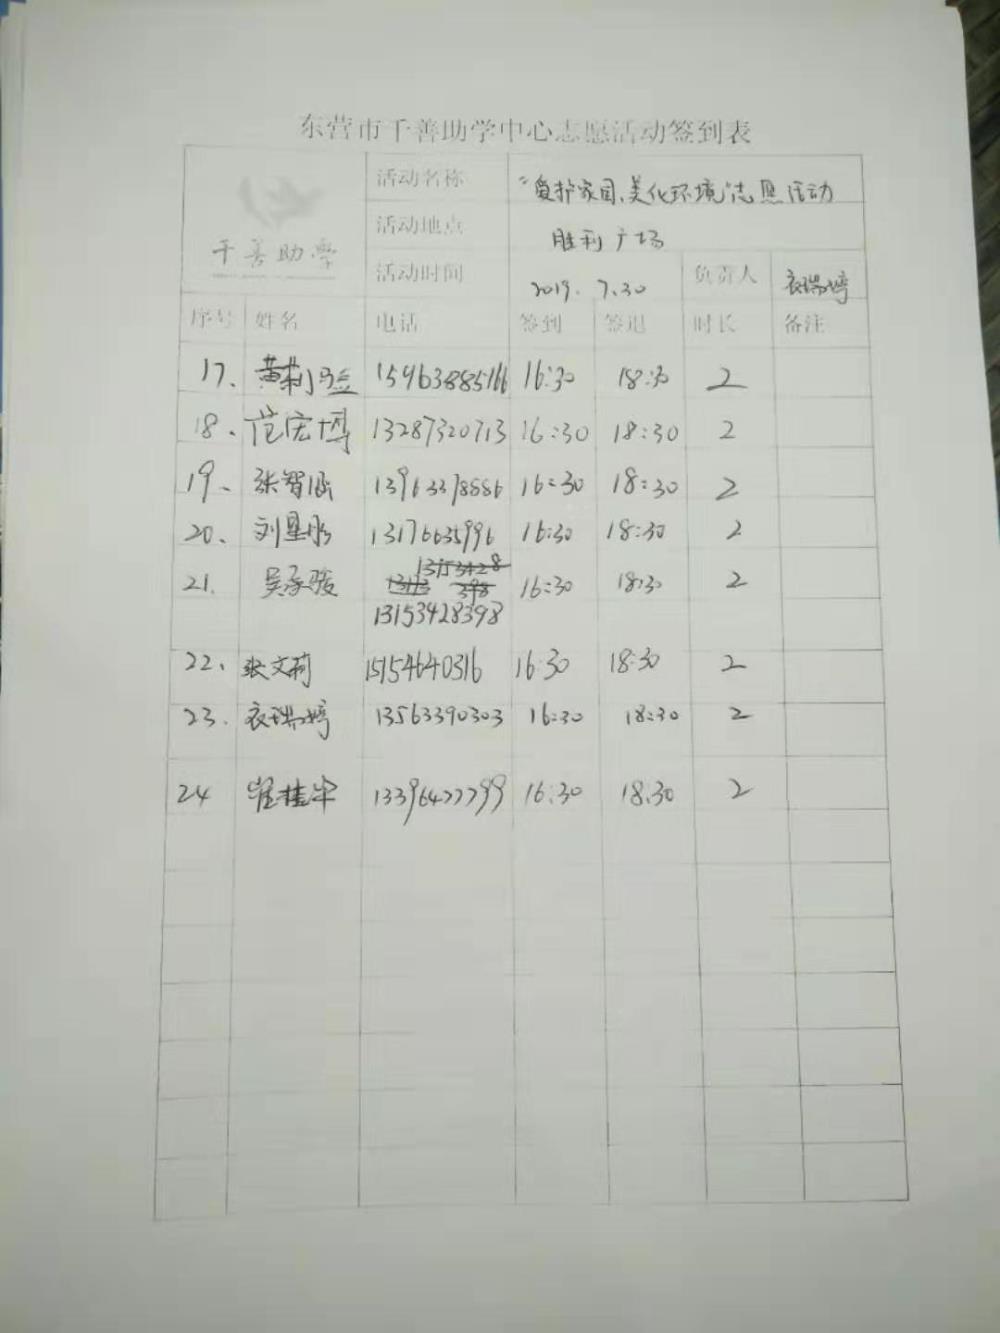 东营市千善助学中心志愿活动签到表
千善助学
活动名称 “爱护家园、美化环境”志愿活动
活动地点 胜利广场
活动时间 2019. 7.30 负责人 衣瑞婷
序号 姓名 电话 签到 签退 时长 备注
17、 黄莉 15963885166 16:30 18:30 2
18、 范宏博 13287320713 16:30 18:30 2
19、 张智涵 13963378886 16:30 18:30 2
20、 刘星彤 13176635996 16:30 18:30 2
21. 吴承骏 16:30 18:30 2
13153428398
22、 张文莉 15154640316 16:30 18:30 2
23. 衣瑞婷 13563390303 16:30 18:30 2
24 崔桂 13396477799 16:30 18.30 2